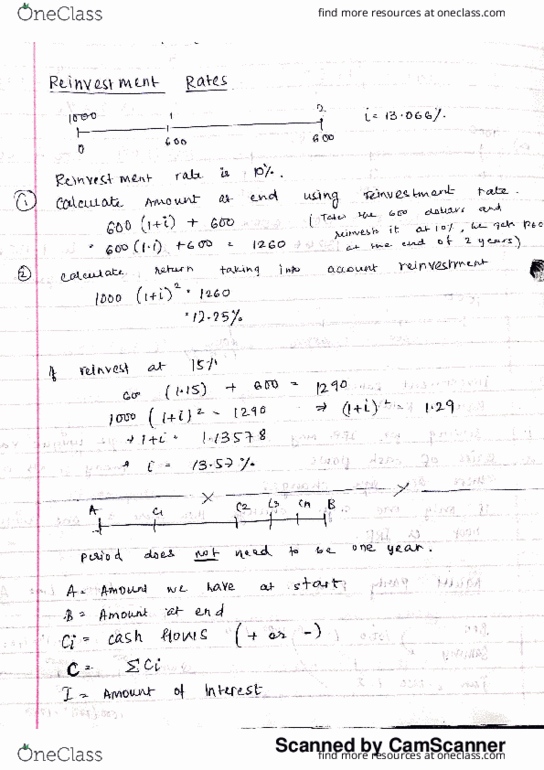 OneClass
find more resources at oneclass.com
Reinvestment Rates
1000 1 2 i = 13.066%.
0 600 600
Reinvestment rate is 10%.
① Calculate Amount at end using reinvestment rate.
600 (1+i) + 600 (Takes the 600 dollars and
600 (1.1) + 600 = 1260 reinvests it at 10%, he gets 1260
at the end of 2 years)
② Calculate return taking into account reinvestment
1000 (1+i)² = 1260
= 12.25%
If reinvest at 15%
600 (1.15) + 600 = 1290
1000 (1+i)² = 1290 ⇒ (1+i)² = 1.29
→ 1+i = 1.13578
→ i = 13.57%
A C1 C2 C3 Cn B
period does not need to be one year.
A = Amount we have at start
B = Amount at end
Ci = cash flows (+ or -)
C = ΣCi
I = Amount of Interest
Scanned by CamScanner
OneClass
find more resources at oneclass.com